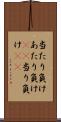 当たり負け
あたり負け
当り負
け